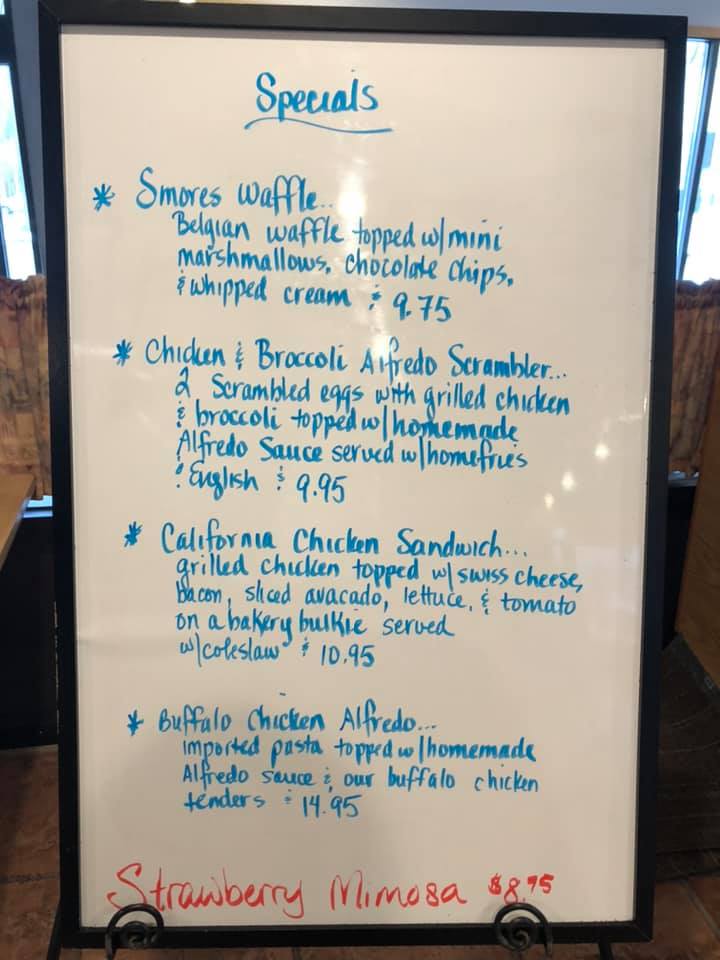 Specials
* Smores Waffle..
Belgian waffle topped w/mini
marshmallows, chocolate chips,
& whipped cream $ 9.75
* Chicken & Broccoli Alfredo Scrambler...
2 Scrambled eggs with grilled chicken
& broccoli topped w/homemade
Alfredo Sauce served w/homefries
& English $ 9.95
* California Chicken Sandwich...
grilled chicken topped w/swiss cheese,
bacon, sliced avacado, lettuce, & tomato
on a bakery bulkie served
w/coleslaw $ 10.95
* Buffalo Chicken Alfredo...
imported pasta topped w/homemade
Alfredo sauce & our buffalo chicken
tenders $ 14.95
Strawberry Mimosa $8.75